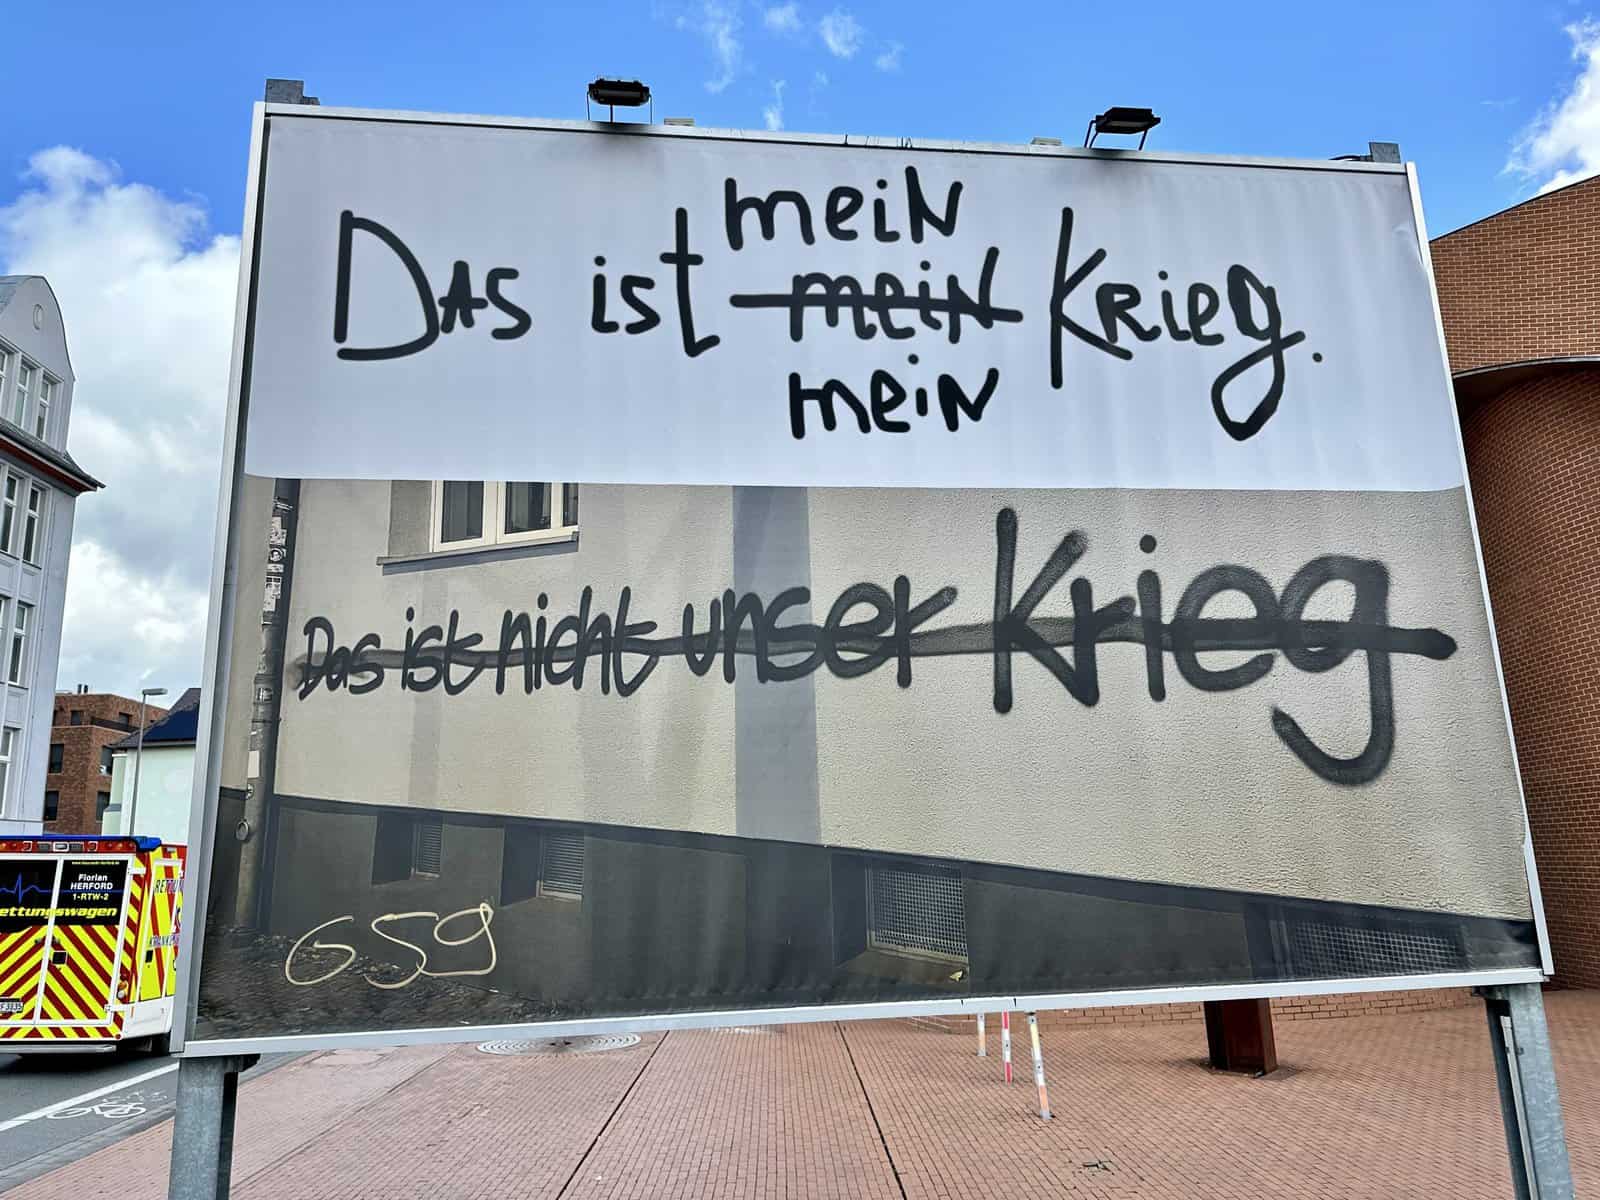 mein
Das ist mein Krieg.
mein
Das ist nicht unser Krieg
659
Florian
HERFORD
1-RTW-2
ettungswagen